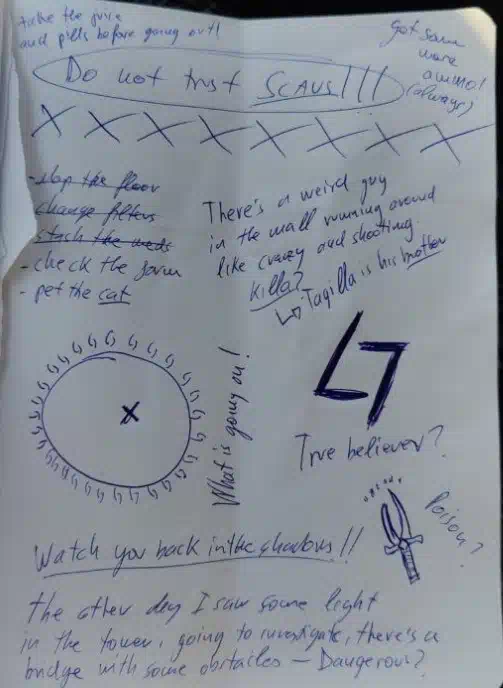 take the juice
and pills before going out!
Got some
more
ammo!
(always)
Do not trust SCAVS!!!
- slap the floor
change filters
stash the meds
- check the farm
- pet the cat
There's a weird guy
in the mall running around
like crazy and shooting.
Killa?
Tagilla is his brother
What is going on!
True believer?
Poison?
Watch you back in the shadows!!
The other day I saw some light
in the tower, going to investigate, there's a
bridge with some obstacles – Dangerous?